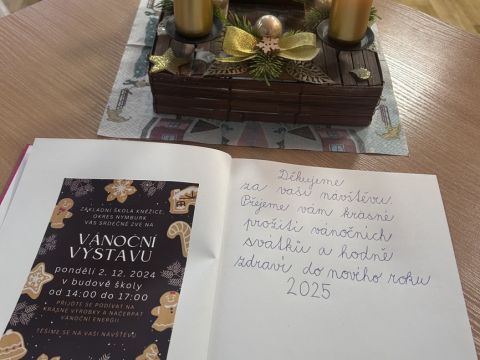 ZÁKLADNÍ ŠKOLA KNĚŽICE,
OKRES NYMBURK
VÁS SRDEČNĚ ZVE NA
VÁNOČNÍ
VÝSTAVU
pondělí 2. 12. 2024
v budově školy
od 14:00 do 17:00
PŘIJĎTE SE PODÍVAT NA
KRÁSNÉ VÝROBKY A NAČERPAT
VÁNOČNÍ ENERGII.
TĚŠÍME SE NA VAŠI NÁVŠTĚVU
Děkujeme
za vaši návštěvu.
Přejeme vám krásné
prožití vánočních
svátků a hodně
zdraví do nového roku
2025